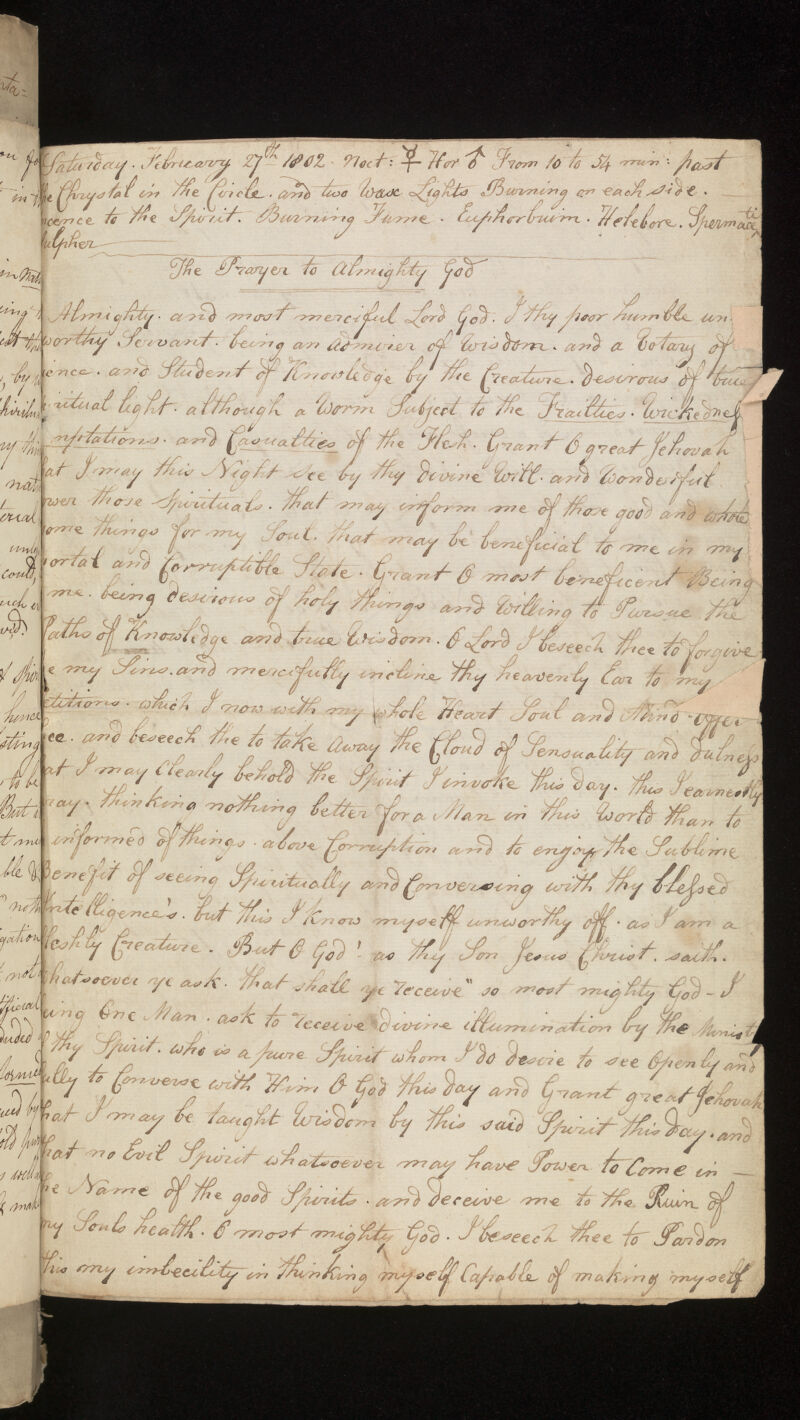 Saturday. Februeary 27th 1802. Noct: ☿ Hor ♂ From 10 to 54 min: past
he Chrystal in the Circle. and two Wax Lights Burning on each side.
cence to the Spirit. Burning Fume. Euphorbuim. Helebore. Spermaceti
ulpher
The Prayer to Almighty God
Almighty. and most merciful Lord God. I thy poor humble un-
worthy Servant. being an admirer of Wisdom. and a Votary of
ience. and Student of Knowledge by the Creature. desirous of true
piritual light. although a Worm Subject to the Frailties. Wickedness
mptations. and Casualties of the Flesh. Grant O great Jehovah
hat I may this Night see by thy divine Will. and Wonderful
ower those Spirituals. that may inform me of those good and whole
some things for my Soul. that may be beneficial to me in my
ortal and Corruptible State. Grant O most beneficent Being
me. being desirous of holy things and Willing to Pursue the
Paths of Knowledge and true Wisdom. O Lord I beseech thee to forgive
e my Sins. and mercifully incline thy heavenly Ear to my
etitions. which I now with my whole Heart Soul and Mind. offer
ee. and beseech the to take away the Cloud of Sensuality and dulness
at I may Clearly behold the Spirit I invoke this day. this I earnestly
ray. thinking nothing better for a Man in this World than to
informed of things. above Corruption and to enjoy the Sublime
Benefit of seeing Spiritually and Conversing with thy blessed
Intelligence's. but this I know myself unworthy off. as I am a
fleshly Creature. But O God! as thy Son Jesus Christ. saith.
hatsoever ye ask. that shall ye receive" so most mighty God - I
eing One Man. ask to receive divine illumination by the Minist
thy Spirit. who is a pure Spirit whom I do desire to see Openly and
ully to Converse with Him O God this day and Grant great Jehovah
hat I may be taught Wisdom by this said Spirit this day. and
hat no Evil Spirit whatsoever may have Power to Come in —
he Name of the good Spirits. and deceive me to the Ruin of
my Souls health. O most mighty God. I beseech thee to Pardon
this my imbecility in thinking myself Capable of making myself